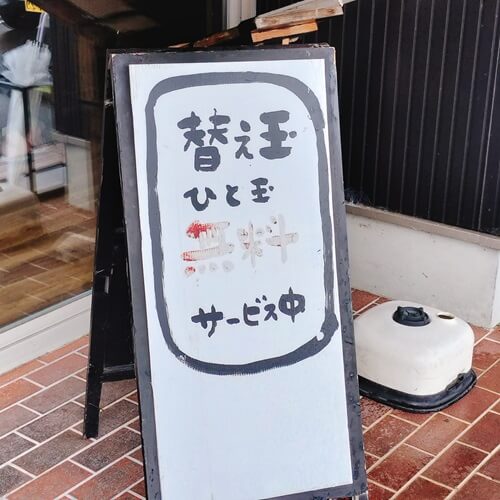 替え玉
ひと玉
無料
サービス中